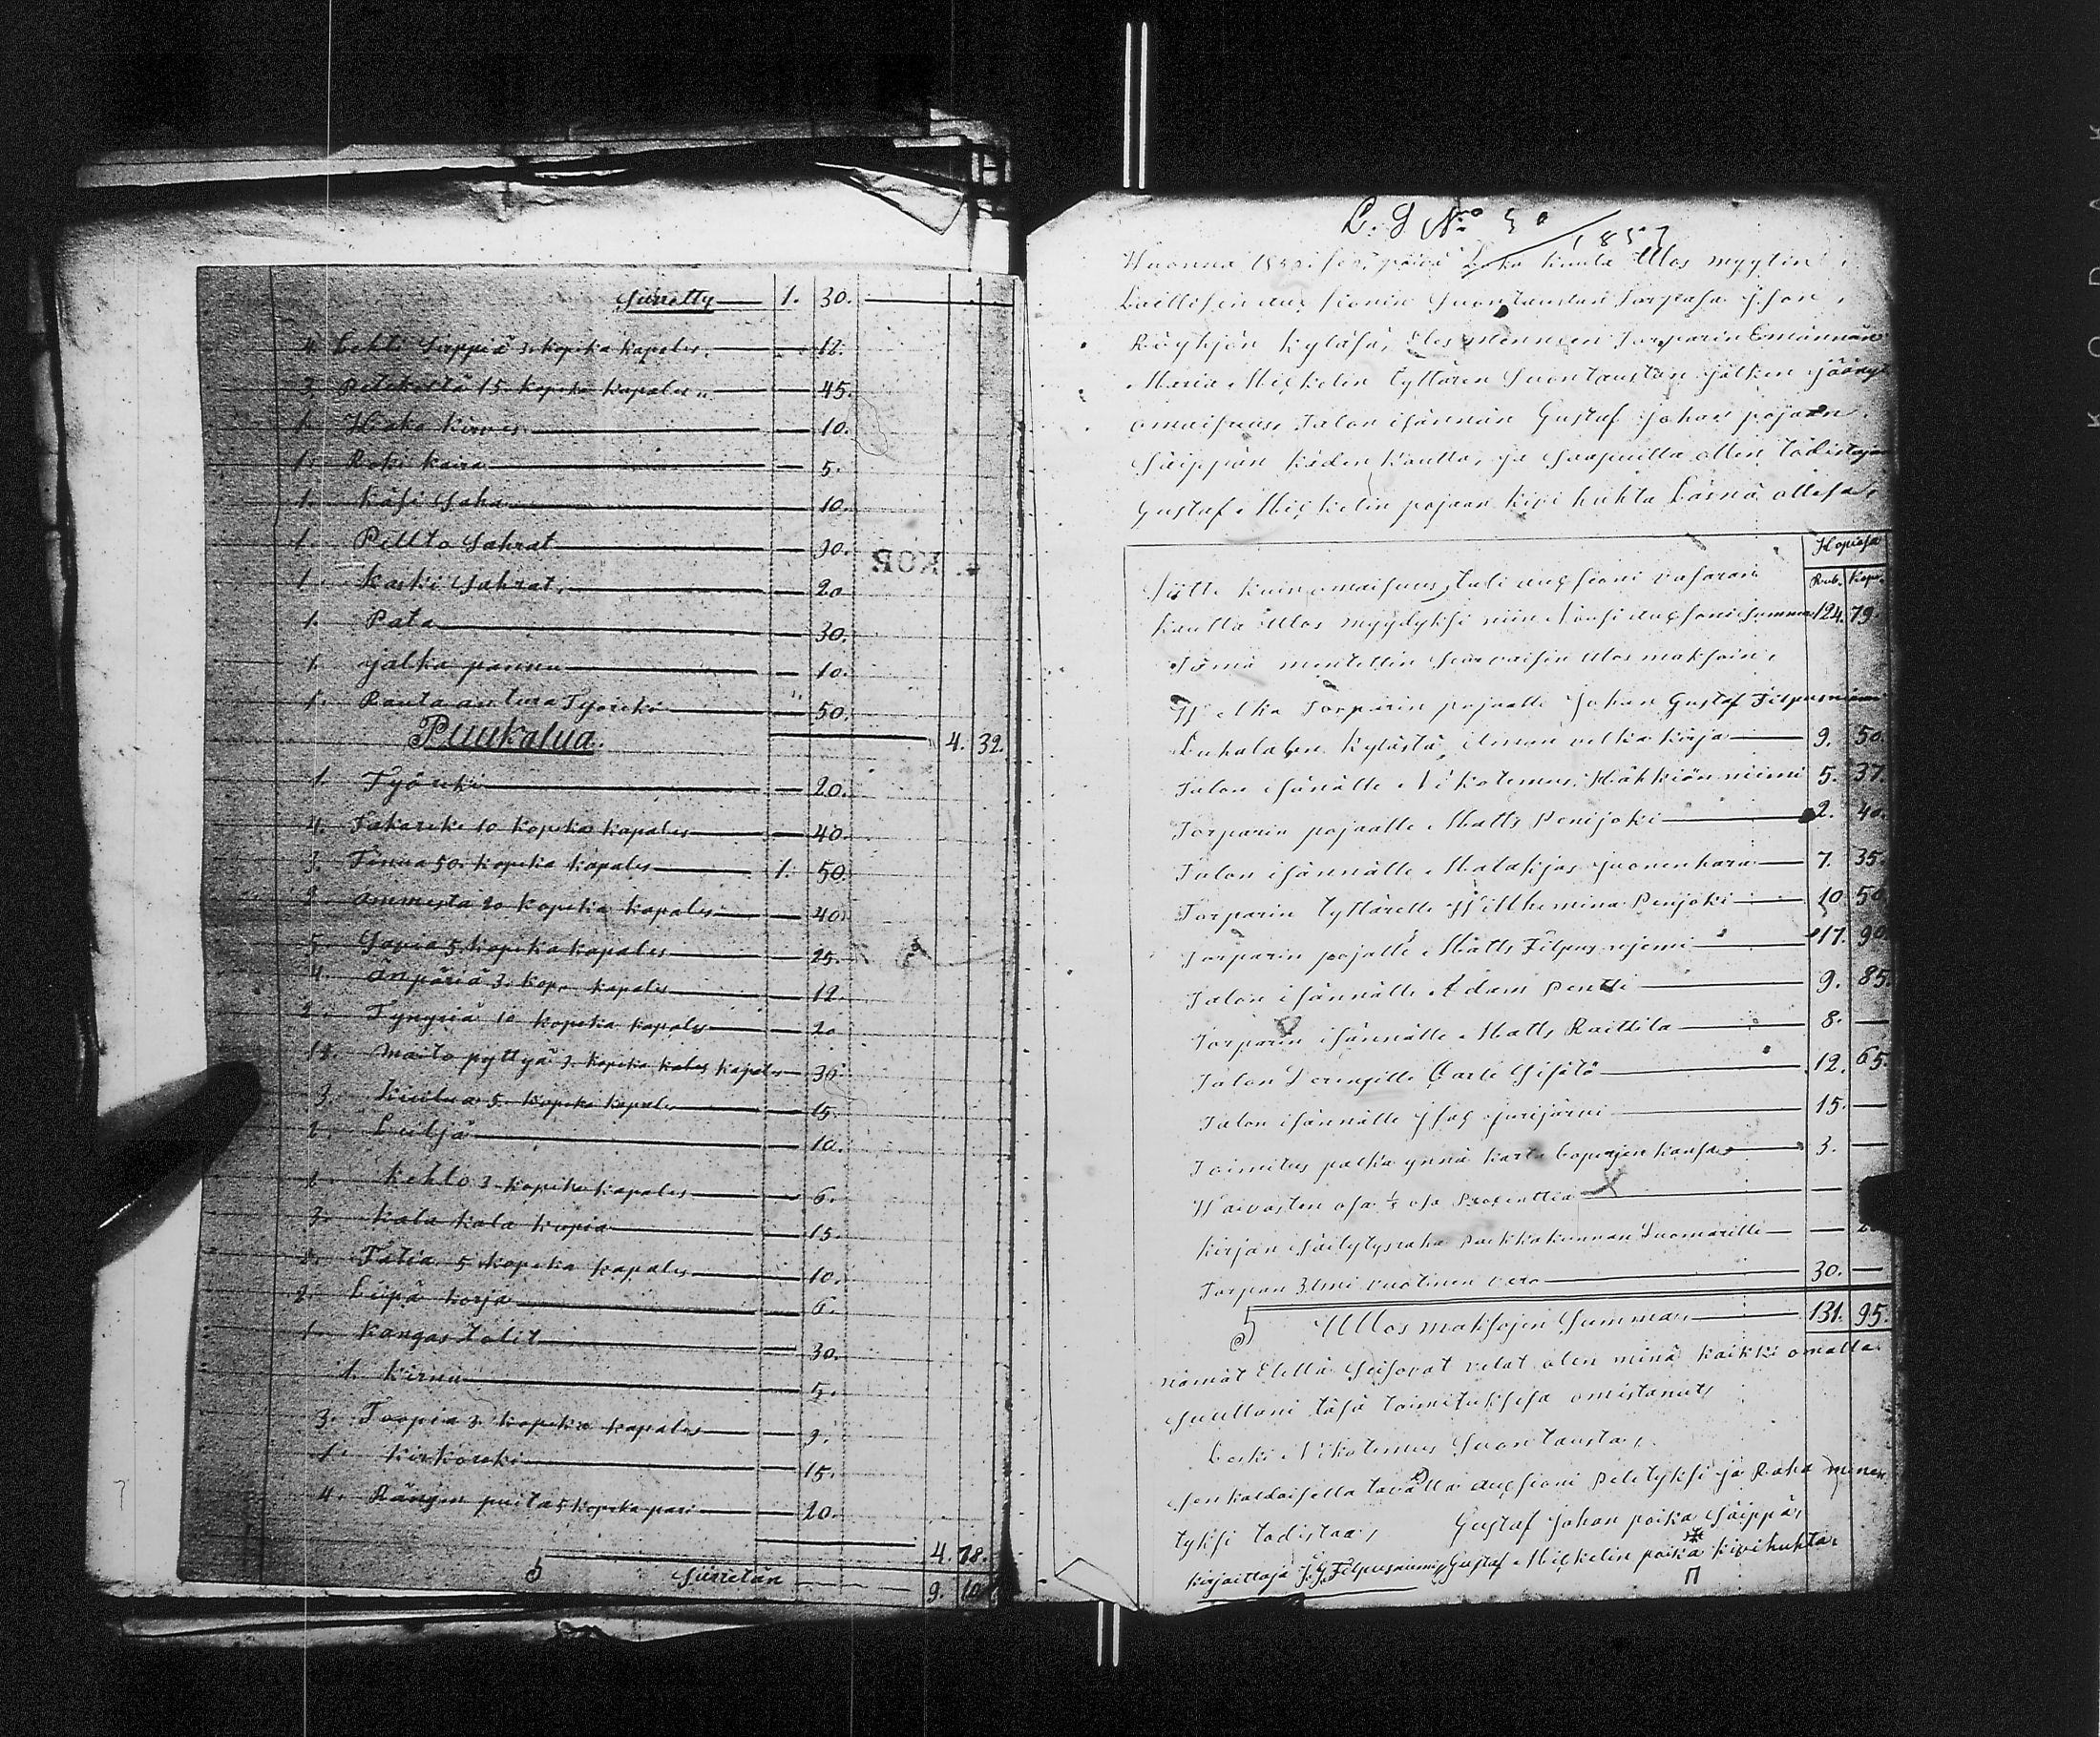 Siirretty 1. 30.
4. Lehti Sirppiä 3. kopeka kapales. 12.
3. 15. kopeka kapales 45.
1. Haka kirves 10.
1. Roki kaira 5.
1. käsi Saha 10.
1. Pellto Sahrat 30.
1. kaski Sahrat. 20
1. Pata 30.
1. jalka pannu 10.
1. Rauta antura Työreki 50.
Puukalua. 4. 32.
1. Työreki 20.
4. Takareke 10 kopeka kapales 40.
3. Tinua 50. kopeka kapales 1. 50.
2 ammesta 20 kopeka kapales 40.
5. Savia 5. kopeka kapales 25.
4. änpäriä 3. kop. kapales 12.
2. Tynyriä 10 kopeka kapales 20
10. maito pyttyä 3. kopeka kapales 30
3. 5. kopeka kapales 15.
1. Leiljä 10.
2. kehlo 3 kopeka kapales 6.
3. kala kopia 15.
2. Tatia 5 kopeka kapales 10.
2. Leipä korja 6.
1. kangas tolit 30.
1. kirnu 5.
3. Toopia 3. kopeka kapales 9.
1. kirkoreki 15.
4. Rängen puita 5 kopeka pari 20.
4. 78.
Siiretän 9. 10
L. S No 50
1857
Wuonna päivä kuuta Ulos myytin
Laillisen aucsionin Suontaustan Torpasa
Röyhjön kyläsä, Torparin Emännän
Maria Mickelin tyttären Suontaustan jälken jäänyt
omaisuus Talon isännän Gustaf Johan pojaan
Säippän käden kautta, ja Saapuilla ollen todistajan
Gustaf Mickelin pojaan kivi huhta Läsnä ollesa,
Kopeisa
Rub. kope.
Sitte kuin omaisuus tuli aucsioni vasaran
kautta Ulos myydyksi niin Nousi aucsoni Summa 124. 79.
Tämä mentettin Seuraavaisin Ulos maksoin,
Welka Torparin pojaalle Johan Gustaf Filpusniemi
kylästä ilman velka kirja 9. 50.
Talon isänälle Nikotemus Häkkiön niemi 5. 37.
Torparin pojaalle Matts Penijoki 2. 40.
Talon isännälle Matakijas Juonenkara 7. 35.
Torparin tyttärelle Willhemina Penijoki 10 50
Torparin pojalle Matts Filpus njemi 17. 90.
Talon isännälle Adam Pentti 9. 85.
Torparin isännälle Matts Raittila 8.
Talon Drengille Carle Sisätö 12. 65.
Talon isännälle Isac Jurijärvi 15.
Toimitus palka ynnä karta kansa 3.
Waivasten osa 1/8 osa Prosenttia
kirjan Säilytysraha paikkakunnan Tuomarille
Torpan 3:lmi vuotinen vero 30.
Ullos maksojen Summa 131. 95.
nämät Edellä Seisovat velat olen minä kaikki omalla
Suullani täsä toimituksesa omistanut,
Leski Nikotemus Suontausta,
Senkaldaisella tavalla aucsioni Peletyksi ja Raha
tyksi todistaa, Gustaf Johan poika Säippä,
kirjoittaja J. G. Filpusniemi, Gustaf Mickelin poika kivihuhta.